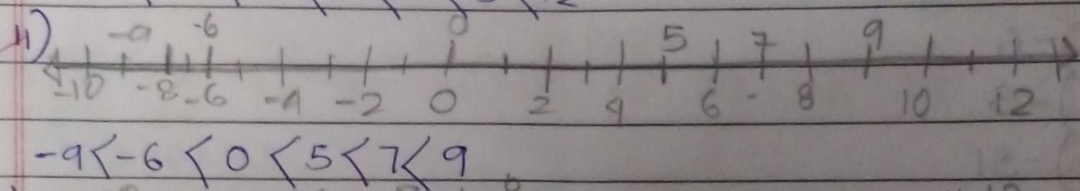 11)
-9 -6 0 5 7 9
-10 -8 -6 -4 -2 0 2 4 6 8 10 12
-9 < -6 < 0 < 5 < 7 < 9